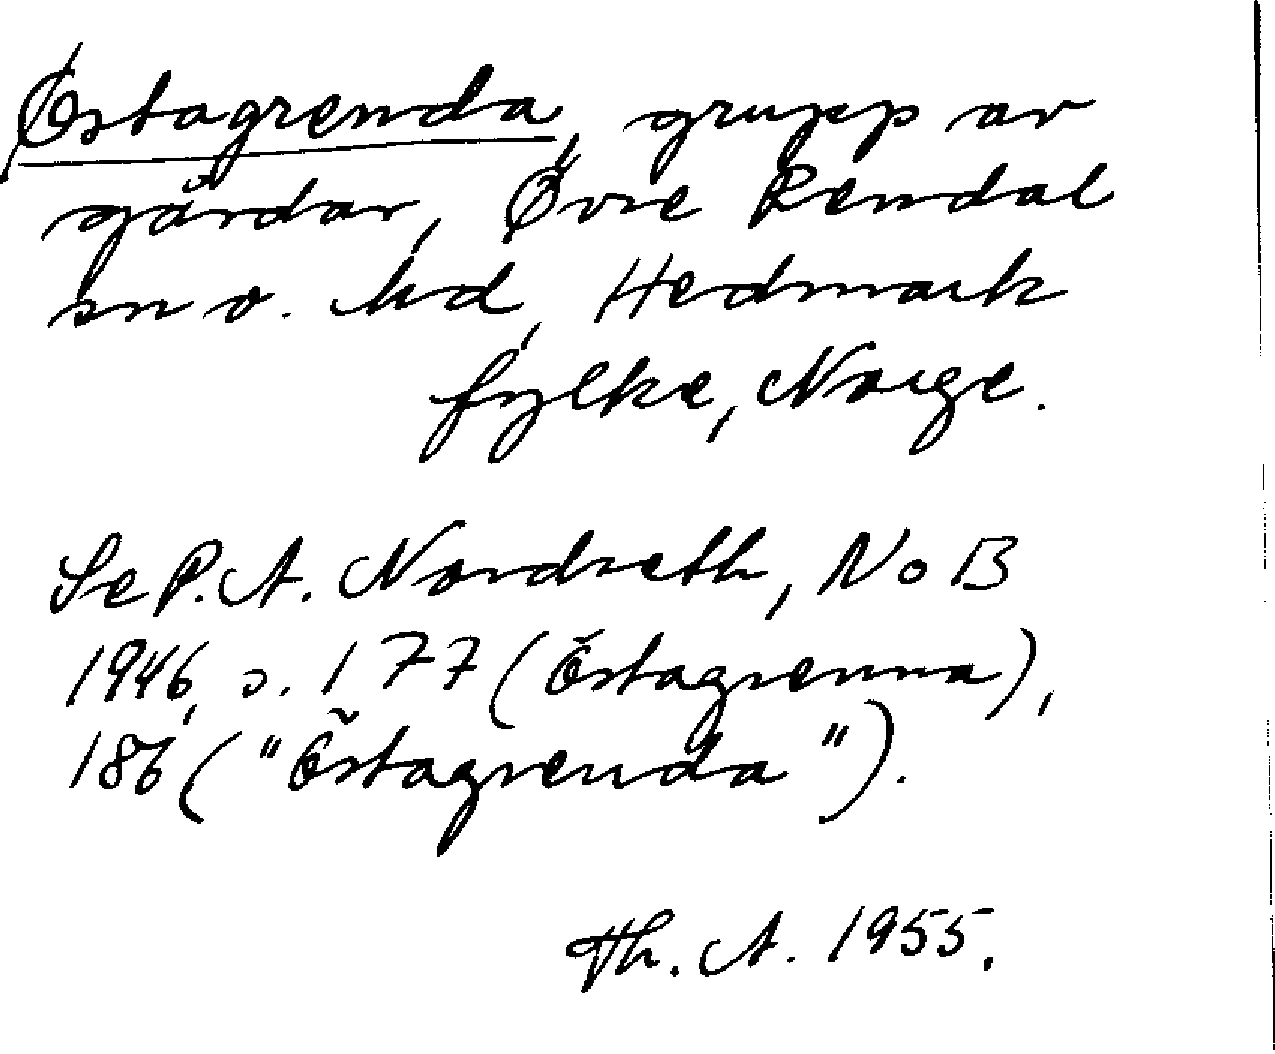 Østagrenda, grupp av
gårdar, Övre Rendal
sn o. hd, Hedmark
fylke, Norge.
Se P. A. Nordseth, NoB
1946, s. 177 (Östagrenna),
186 ("Östagrenda").
Th. A. 1955.